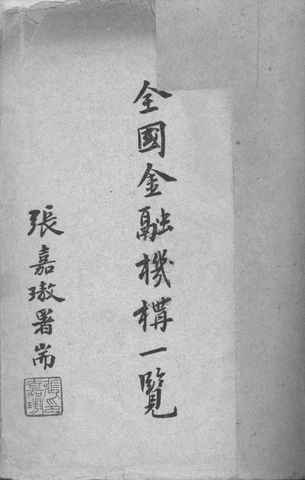 全國金融機構一覽
張嘉璈署耑